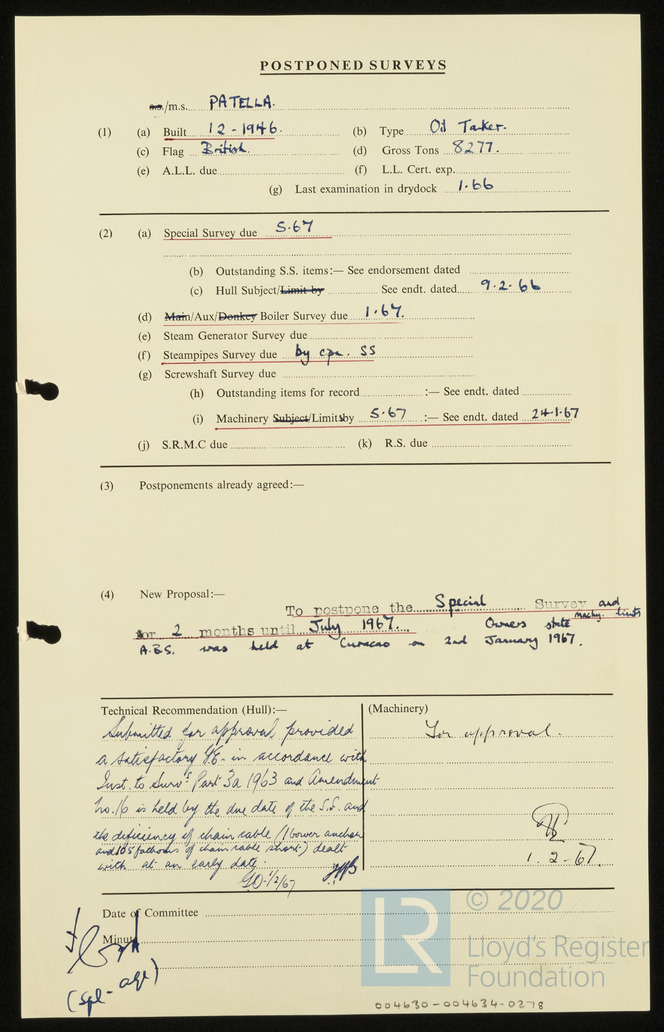 POSTPONED SURVEYS
s.s./m.s. PATELLA.
(1) (a) Built 12-1946. (b) Type Oil Tanker.
(c) Flag British. (d) Gross Tons 8277.
(e) A.L.L. due (f) L.L. Cert. exp.
(g) Last examination in drydock 1.66
(2) (a) Special Survey due 5.67
(b) Outstanding S.S. items:— See endorsement dated
(c) Hull Subject/Limit by See endt. dated 9.2.66
(d) Main/Aux/Donkey Boiler Survey due 1.67.
(e) Steam Generator Survey due
(f) Steampipes Survey due by cpn. SS
(g) Screwshaft Survey due
(h) Outstanding items for record :— See endt. dated
(i) Machinery Subject/Limits by 5.67 :— See endt. dated 24.1.67
(j) S.R.M.C due (k) R.S. due
(3) Postponements already agreed:—
(4) New Proposal:—
To postpone the Special Survey and machy. limits
for 2 months until July 1967. Owners state
A.B.S. was held at Curacao on 2nd January 1967.
Technical Recommendation (Hull):— (Machinery)
Submitted for approval, provided For approval.
a satisfactory G.E. in accordance with
Inst. to Survs Part 3a 1963 and Amendment
No.16 is held by the due date of the S.S. and
the deficiency of chain cable (1 bower anchor
and 105 fathoms of chain cable short) dealt
with at an early date. 1.2-67.
1/2/67
Date of Committee
Minute
(spl-age)
© 2020
LR
Lloyd's Register
Foundation
004630-004634-0278